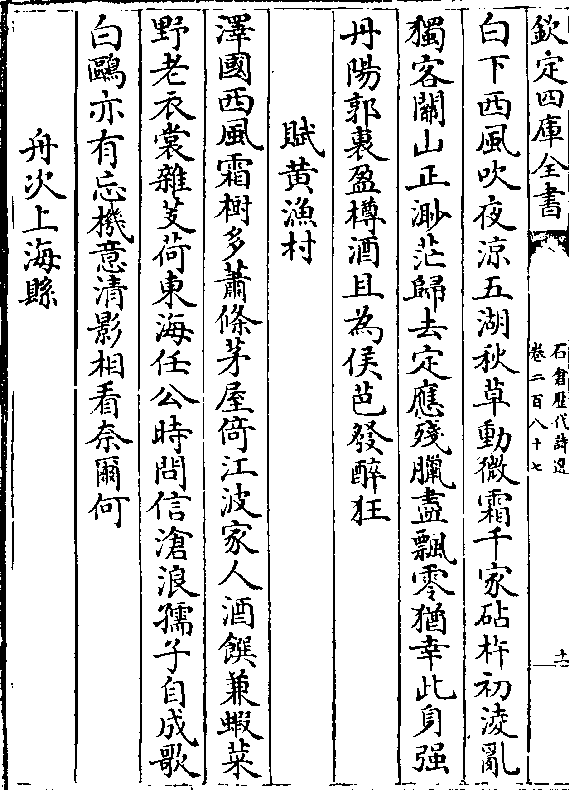 欽定四庫全書
石倉歷代詩選
卷二百八十七
十二
白下西風吹夜涼五湖秋草動微霜千家砧杵初淩亂
獨客關山正渺茫歸去定應殘臘盡飄零猶幸此身强
丹陽郭裏盈樽酒且為侯芭發醉狂
賦黃漁村
澤國西風霜樹多蕭條茅屋倚江波家人酒饌兼蝦菜
野老衣裳雜芰荷東海任公時問信滄浪孺子自成歌
白鷗亦有忘機意清影相看奈爾何
舟次上海縣